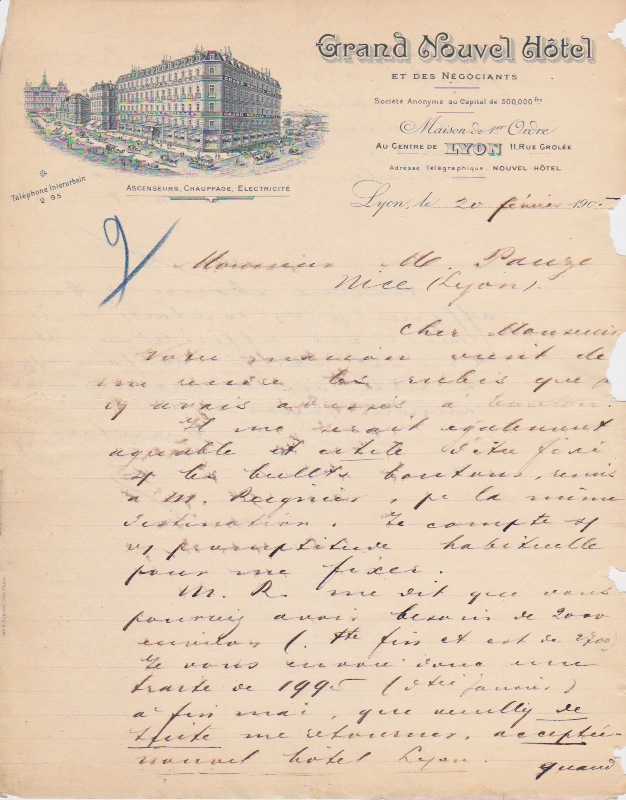 Grand Nouvel Hôtel
ET DES NÉGOCIANTS
Société Anonyme au Capital de 500,000 frs
Maison de 1er Ordre
AU CENTRE DE LYON 11, RUE GROLÉE
Adresse Télégraphique: NOUVEL-HÔTEL
Téléphone Interurbain
2.95
ASCENSEURS, CHAUFFAGE, ELECTRICITÉ
Lyon, le 20 février 190
Monsieur M. Pauze
Nice (Lyon).
Cher Monsieur
Votre maison vient de
me rendre les rubis que
avais adressés à
Il me serait également
agréable et utile d'être fixé
les boutons, remis
a M. Reignier, pr la même
destination. Je compte
promptitude habituelle
pour me fixer.
M. R. me dit que vous
pourriez avoir besoin de 2000
environ (
Je vous envoie donc une
traite de 1995 (janvier)
à fin mai, que veuillez de
suite me retourner, acceptée
nouvel hôtel Lyon.
quand